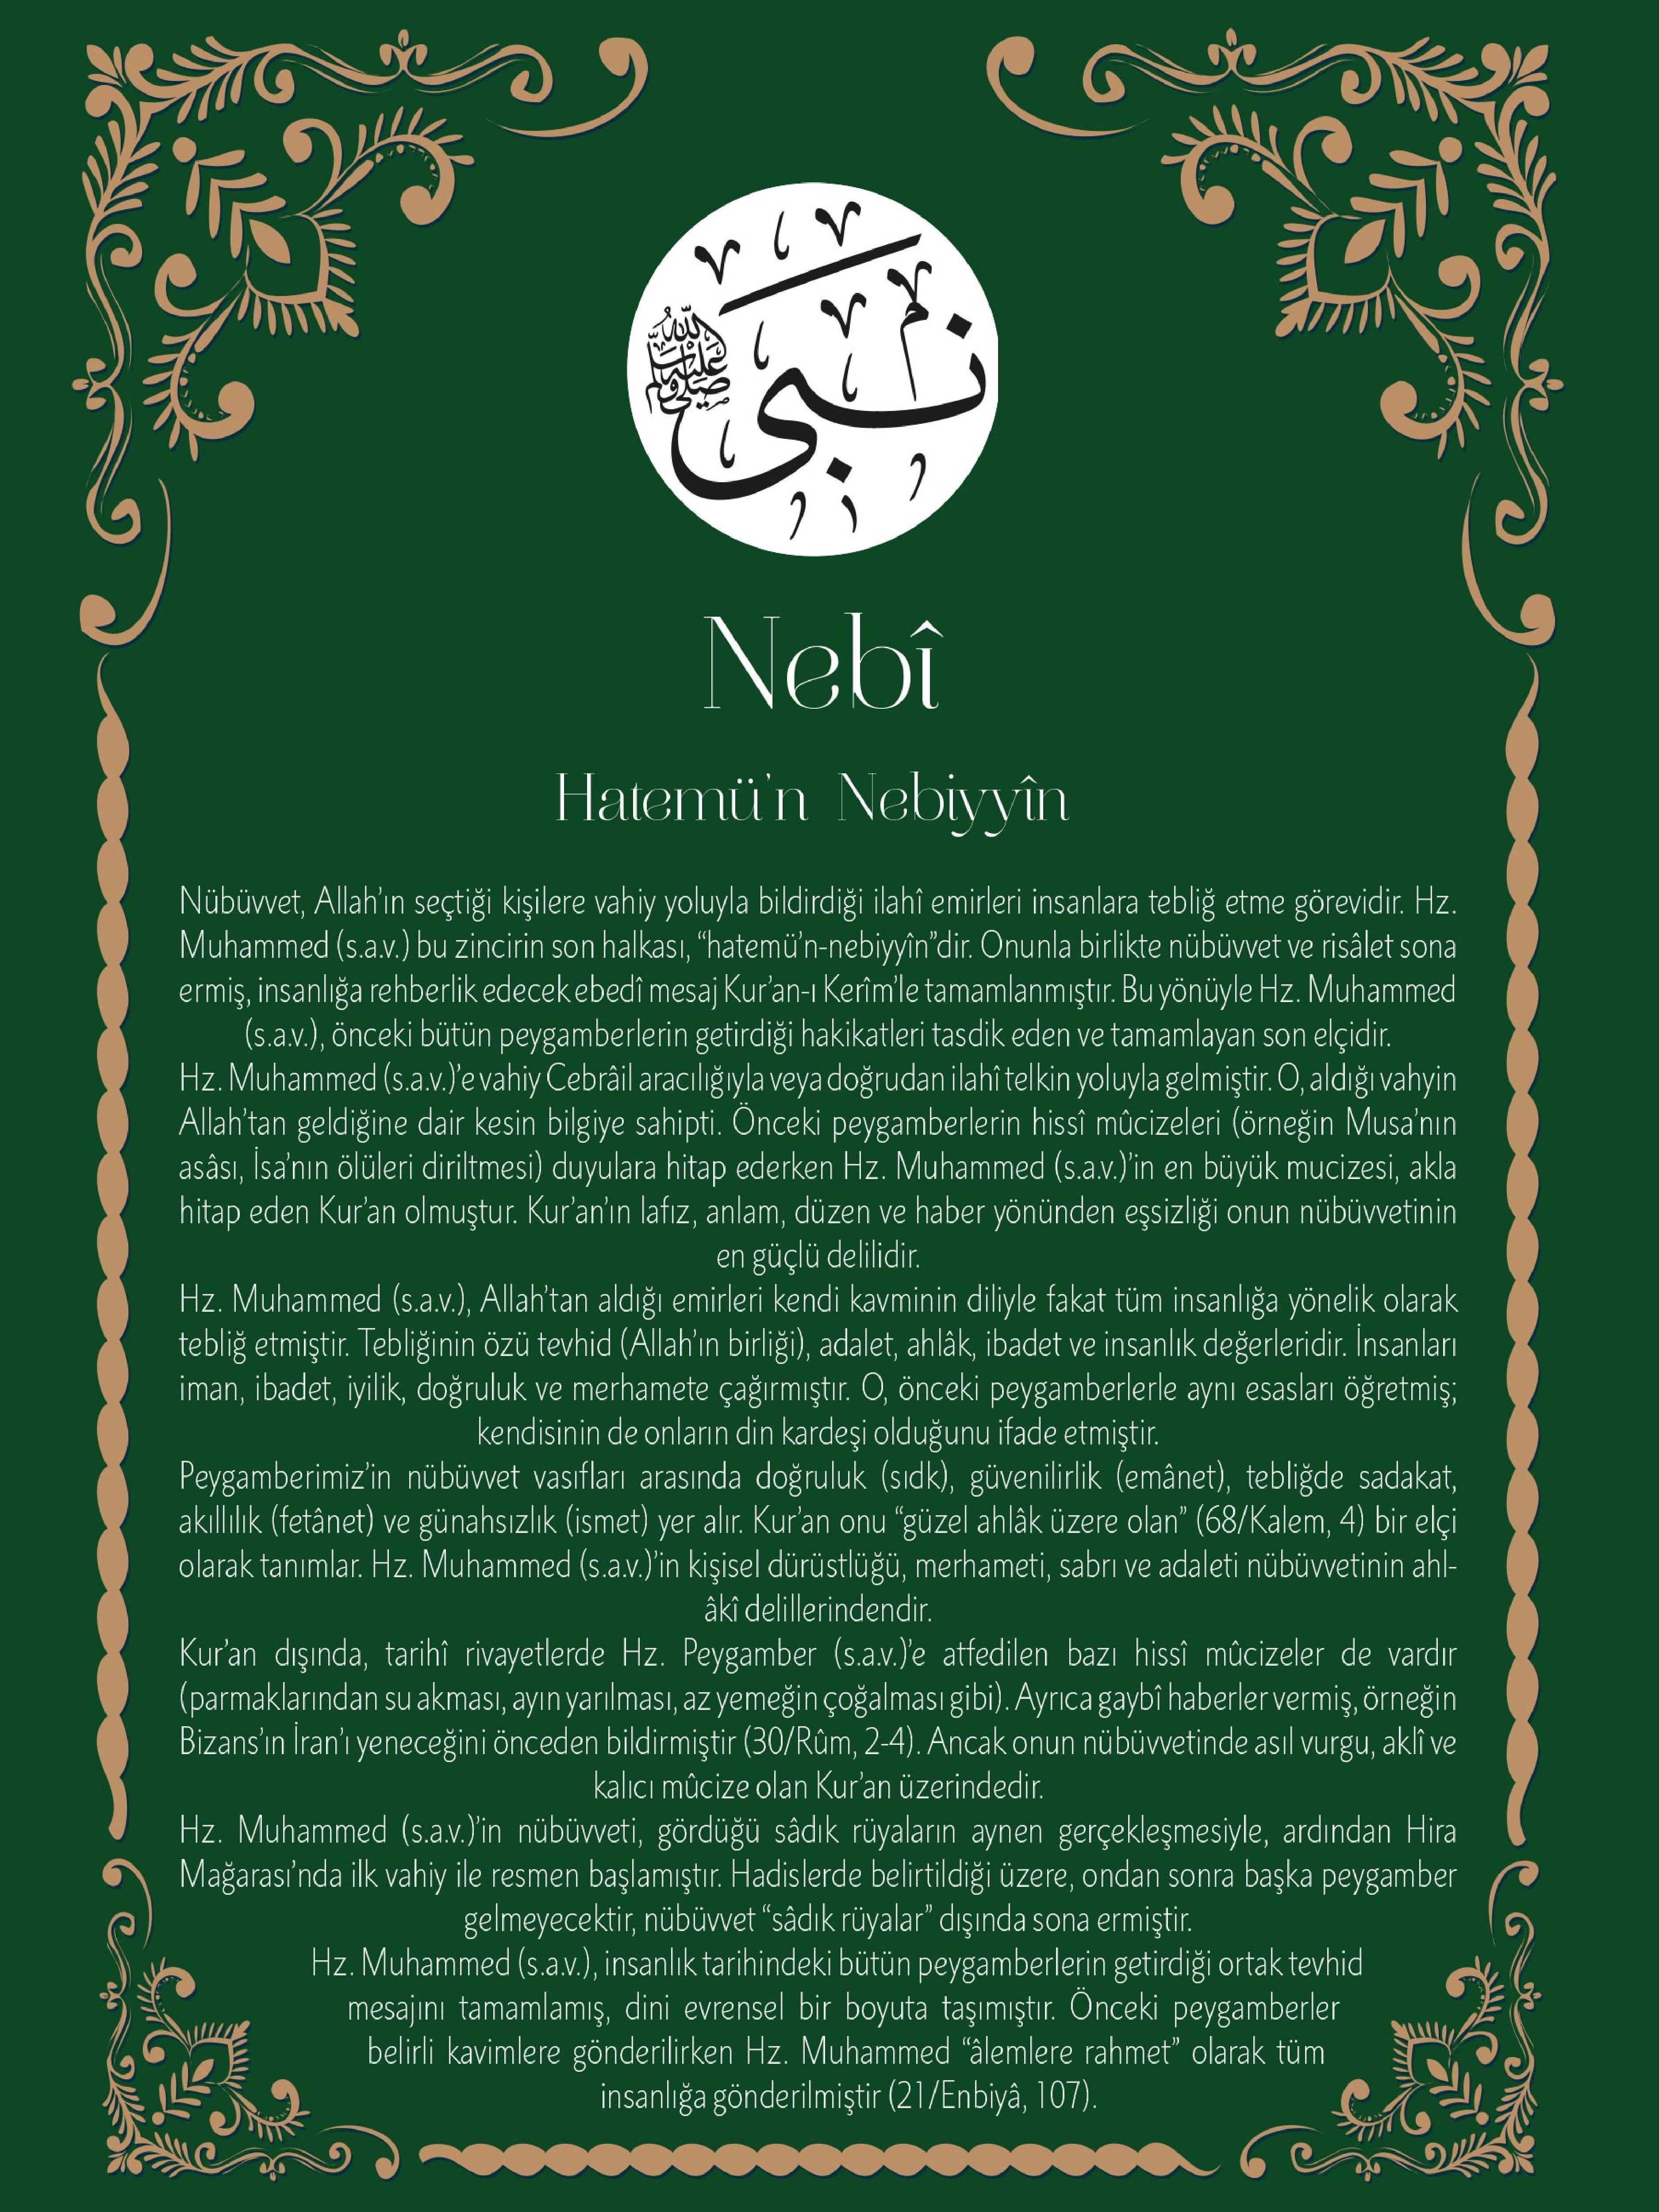 نبي
صلى الله عليه وسلم
Nebî
Hatemü'n Nebiyyîn
Nübüvvet, Allah’ın seçtiği kişilere vahiy yoluyla bildirdiği ilahî emirleri insanlara tebliğ etme görevidir. Hz.
Muhammed (s.a.v.) bu zincirin son halkası, “hatemü’n-nebiyyîn”dir. Onunla birlikte nübüvvet ve risâlet sona
ermiş, insanlığa rehberlik edecek ebedî mesaj Kur’an-ı Kerîm’le tamamlanmıştır. Bu yönüyle Hz. Muhammed
(s.a.v.), önceki bütün peygamberlerin getirdiği hakikatleri tasdik eden ve tamamlayan son elçidir.
Hz. Muhammed (s.a.v.)’e vahiy Cebrâil aracılığıyla veya doğrudan ilahî telkin yoluyla gelmiştir. O, aldığı vahyin
Allah’tan geldiğine dair kesin bilgiye sahipti. Önceki peygamberlerin hissî mûcizeleri (örneğin Musa’nın
asâsı, İsa’nın ölüleri diriltmesi) duyulara hitap ederken Hz. Muhammed (s.a.v.)’in en büyük mucizesi, akla
hitap eden Kur’an olmuştur. Kur’an’ın lafız, anlam, düzen ve haber yönünden eşsizliği onun nübüvvetinin
en güçlü delilidir.
Hz. Muhammed (s.a.v.), Allah’tan aldığı emirleri kendi kavminin diliyle fakat tüm insanlığa yönelik olarak
tebliğ etmiştir. Tebliğinin özü tevhid (Allah’ın birliği), adalet, ahlâk, ibadet ve insanlık değerleridir. İnsanları
iman, ibadet, iyilik, doğruluk ve merhamete çağırmıştır. O, önceki peygamberlerle aynı esasları öğretmiş;
kendisinin de onların din kardeşi olduğunu ifade etmiştir.
Peygamberimiz’in nübüvvet vasıfları arasında doğruluk (sıdk), güvenilirlik (emânet), tebliğde sadakat,
akıllılık (fetânet) ve günahsızlık (ismet) yer alır. Kur’an onu “güzel ahlâk üzere olan” (68/Kalem, 4) bir elçi
olarak tanımlar. Hz. Muhammed (s.a.v.)’in kişisel dürüstlüğü, merhameti, sabrı ve adaleti nübüvvetinin ahl-
âkî delillerindendir.
Kur’an dışında, tarihî rivayetlerde Hz. Peygamber (s.a.v.)’e atfedilen bazı hissî mûcizeler de vardır
(parmaklarından su akması, ayın yarılması, az yemeğin çoğalması gibi). Ayrıca gaybî haberler vermiş, örneğin
Bizans’ın İran’ı yeneceğini önceden bildirmiştir (30/Rûm, 2-4). Ancak onun nübüvvetinde asıl vurgu, aklî ve
kalıcı mûcize olan Kur’an üzerindedir.
Hz. Muhammed (s.a.v.)’in nübüvveti, gördüğü sâdık rüyaların aynen gerçekleşmesiyle, ardından Hira
Mağarası’nda ilk vahiy ile resmen başlamıştır. Hadislerde belirtildiği üzere, ondan sonra başka peygamber
gelmeyecektir, nübüvvet “sâdık rüyalar” dışında sona ermiştir.
Hz. Muhammed (s.a.v.), insanlık tarihindeki bütün peygamberlerin getirdiği ortak tevhid
mesajını tamamlamış, dini evrensel bir boyuta taşımıştır. Önceki peygamberler
belirli kavimlere gönderilirken Hz. Muhammed “âlemlere rahmet” olarak tüm
insanlığa gönderilmiştir (21/Enbiyâ, 107).